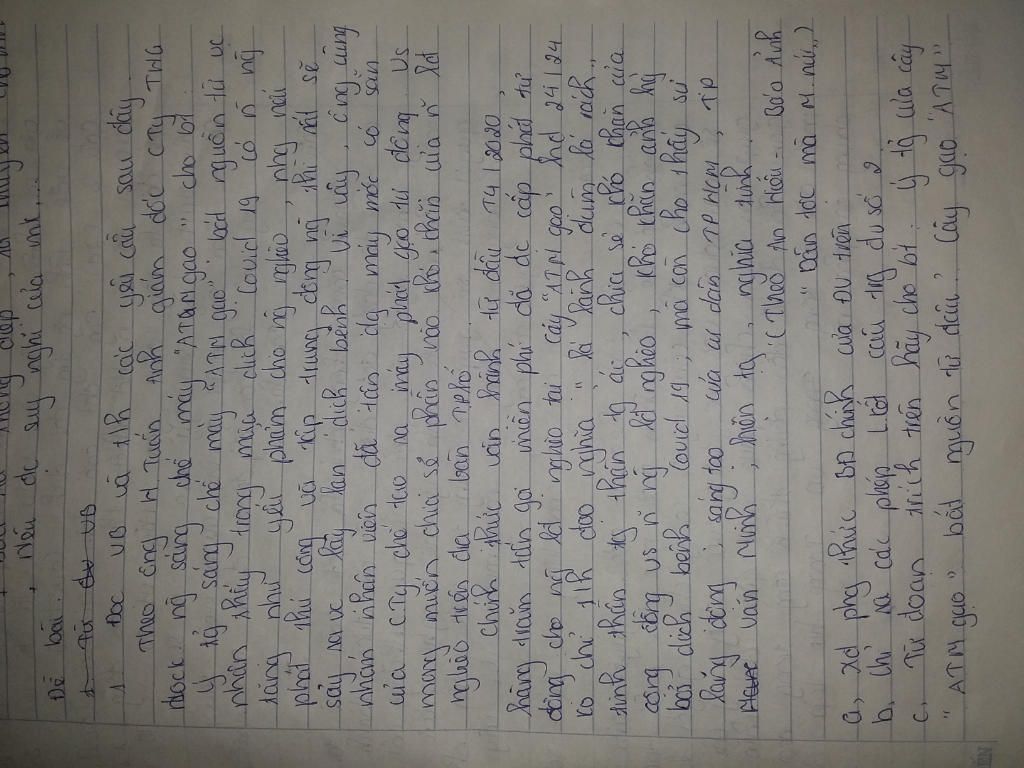 + Nêu đc suy nghĩ của mk...
Đề bài:
1 Đọc VB và t/h các yêu cầu sau đây
Theo ông H Tuấn Anh giám đốc CTy THG
Dock, ng sáng chế máy "ATM gạo" cho bt
Ý tg sáng chế máy "ATM gạo" bắt nguồn từ vc
nhận thấy trong mùa dịch covid 19 có n ng
tặng nhu yếu phẩm cho ng nghèo, ng nói
phát thủ công và tập trung đông ng thì rất sẽ
xảy ra vc lây lan dịch bệnh. Vì vậy, ông cùng
nhóm nhân viên đã tận dg máy móc có sẵn
của CTy chế tạo ra máy phát gạo tự động vs
mong muốn chia sẻ phần nào khó khăn của n lđ
nghèo trên địa bàn TPhố.
Chính thức vận hành từ đầu T4/2020,
hàng trăm tấn gạo miễn phí đã đc cấp phát tự
động cho ng lđ nghèo tại cây "ATM gạo" hđ 24/24
ko chỉ t/h đạo nghĩa "lá lành đùm lá rách",
tinh thần tg thân tg ái, chia sẻ khó khăn của
cộng đồng vs n ng lđ nghèo, khó khăn ảnh hg
bởi dịch bệnh Covid 19, mà còn cho thấy sự
năng động, sáng tạo của cư dân TP HCM, TP
văn minh, hiện đại, nghĩa tình.
(Theo An Hiếu - Báo Ảnh
Dân tộc mà M núi,)
a, Xđ phg thức BĐ chính của ĐV trên
b, Chỉ ra các phép LKết câu trg đv số 2
c, Từ đoạn trích trên hãy cho bt: Ý tg của cây
"ATM gạo" bắt nguồn từ đâu, Cây gạo "ATM"